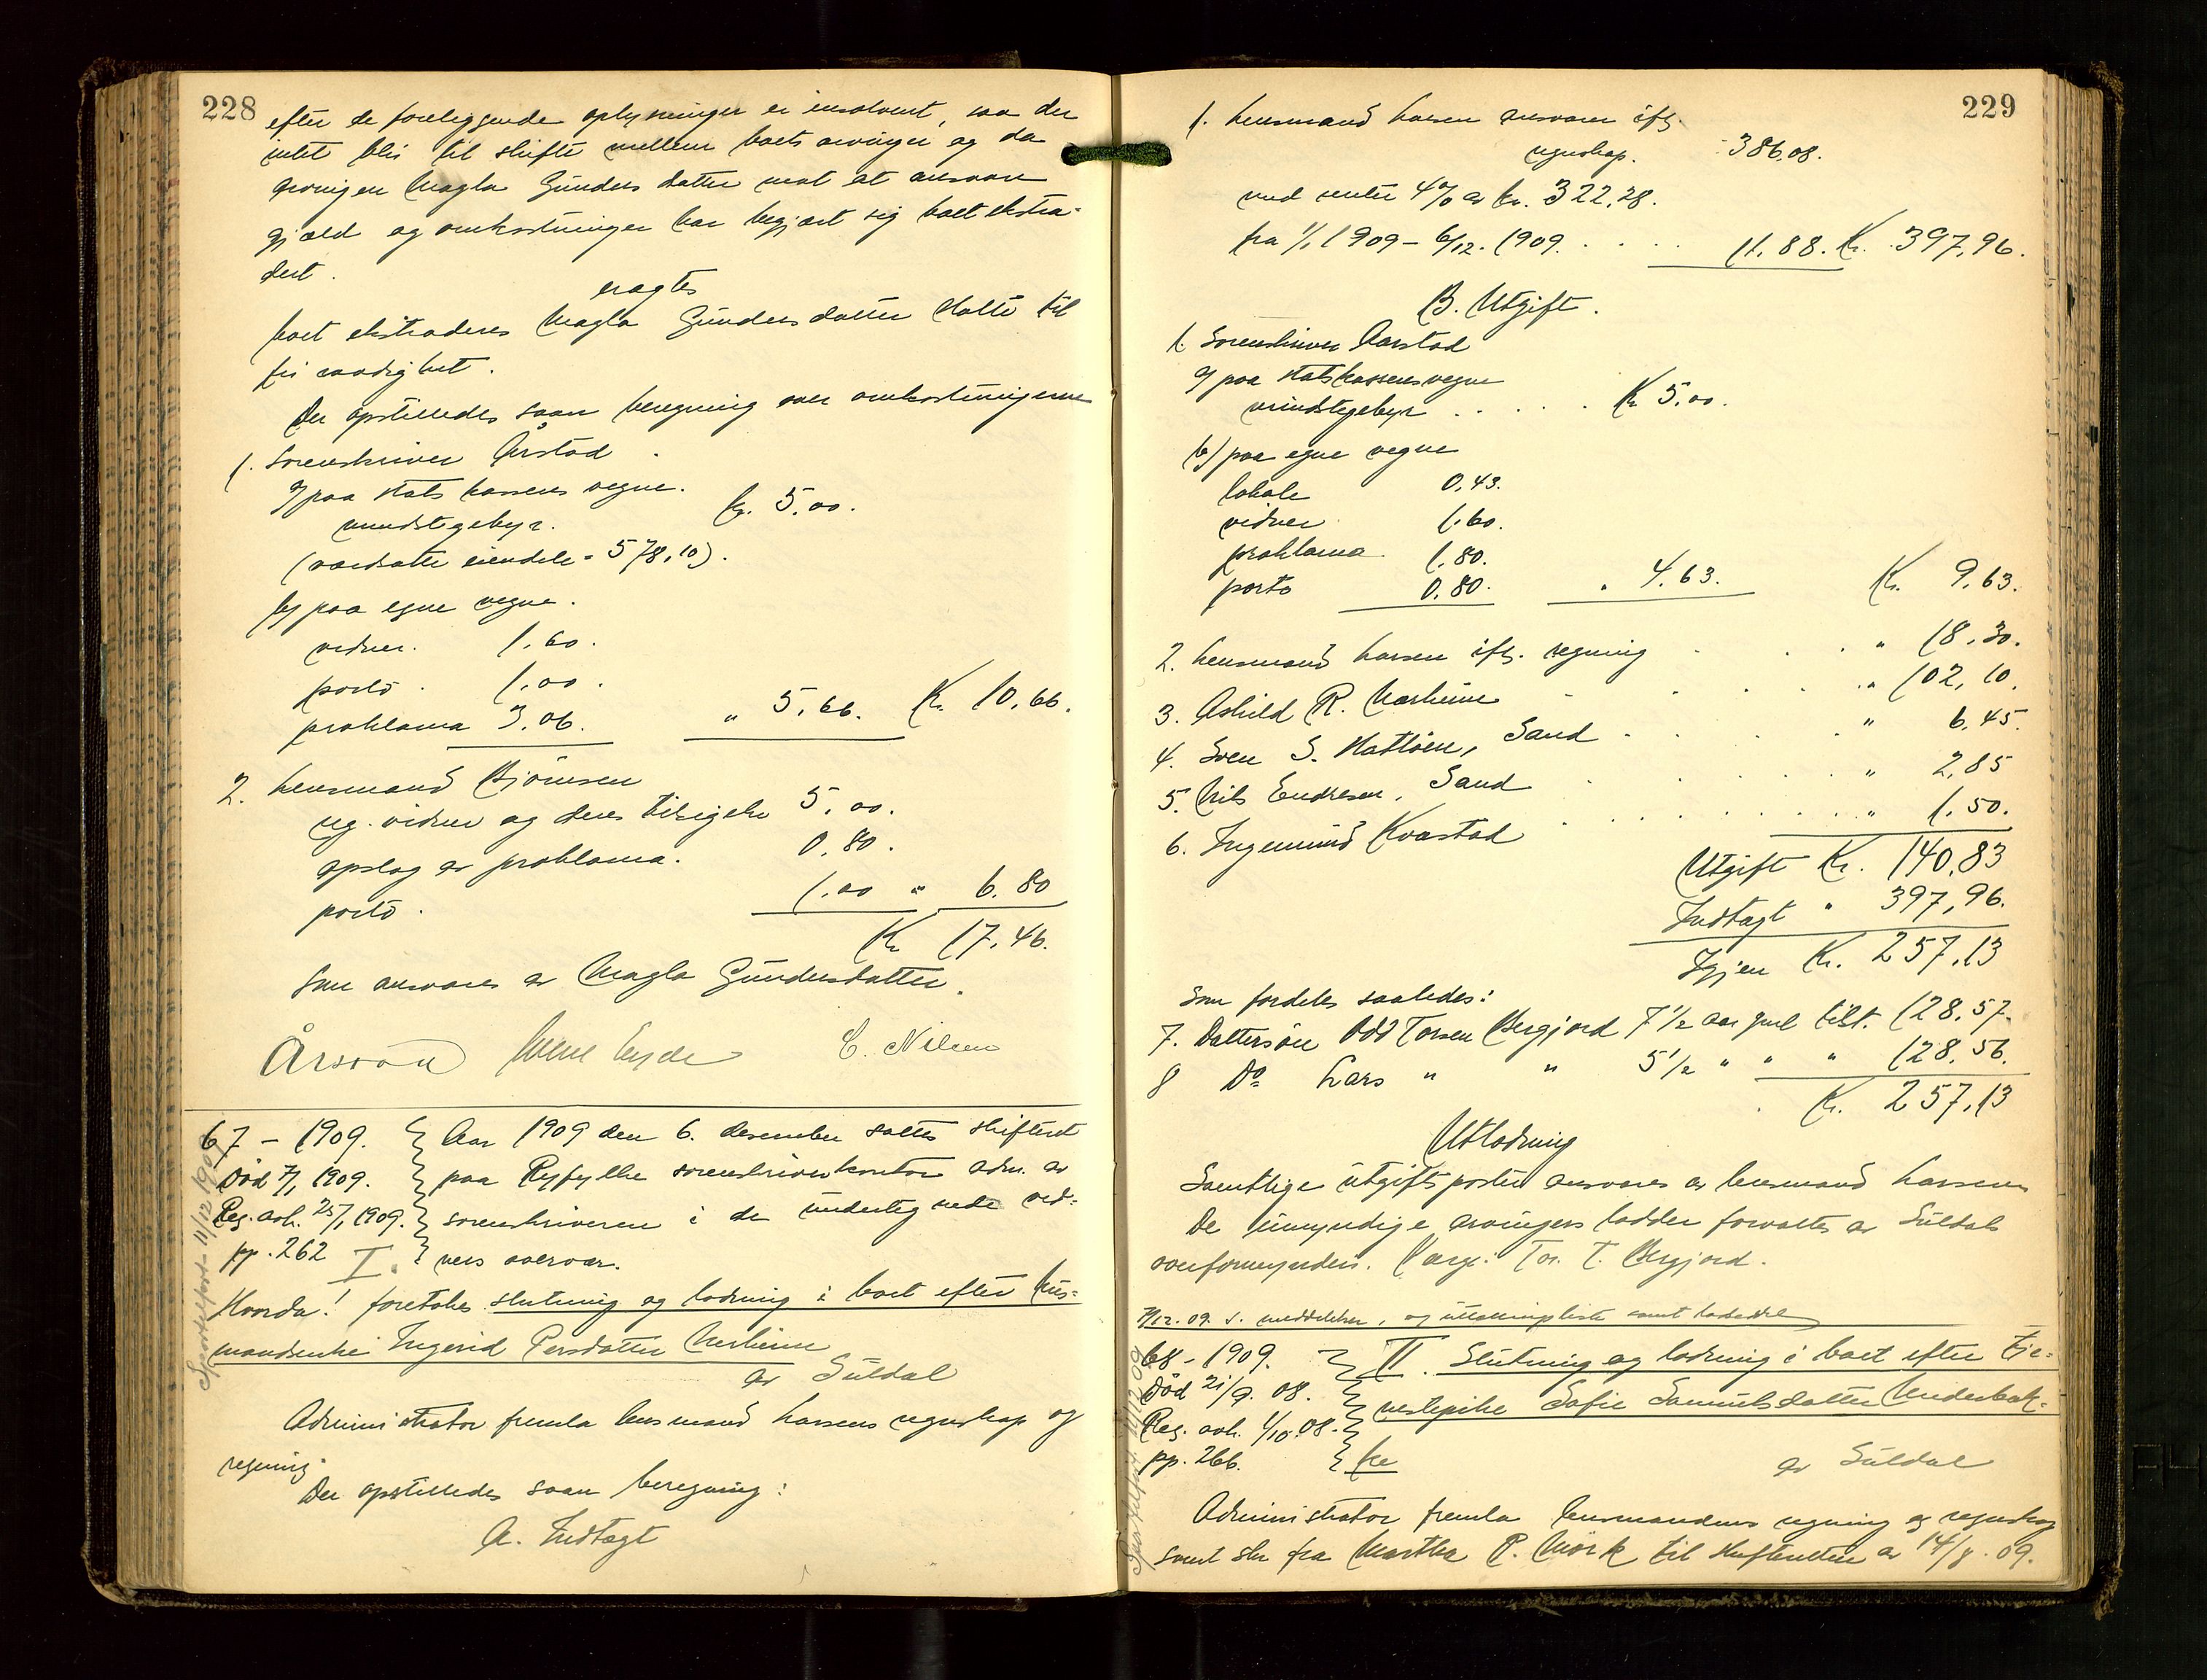 228
efter de foreliggende oplysninger er insolvent, saa der
intet blir til skifte mellem boets arvinger og da
arvingen Magla Gunders datter mot at ansvare
gjæld og omkostninger har begjært sig boet ekstra-
dert.
eragtes
boet ekstraderes Magla Gundersdatter til
fri raadighet.
Der opstilledes saan beregning over omkostningerne
1. Sorenskriver Årstad
a) paa statskassens vegne.
mindstegebyr. Kr. 5,00.
(værdsatte eiendele = 578,10).
b) paa egne vegne.
vidner. 1,60.
porto. 1,00.
proklama 3,06. " 5,66. Kr. 10,66.
2. Lensmand Bjørnsen
reg. vidner og deres tilsigelse 5,00.
opslag av proklama. 0,80.
porto. 1,00 " 6.80
Kr 17,46.
Som ansvares av Magla Gundersdatter.
Årstad C. Nilsen
67 - 1909. Aar 1909 den 6. desember sattes skifteret
Død 7/1 1909. paa Ryfylke sorenskriverkontor adm. av
Reg. avh. 25/1 1909. sorenskriveren i de undertegnede vid-
pp. 262 I. ners overvær.
Hvorda! foretokes slutning og lodning i boet efter hus-
mandsenke Ingerid Persdatter Nærheim
av Suldal
Administrator fremla lensmand Larsens regnskap og
regning.
Der opstilledes saan beregning:
A. Indtægt
229
1. Lensmand Larsen ansvarer ifl.
regnskap. 386,08.
med renter 4% av kr. 322,28.
fra 1/1 1909 - 6/12. 1909. . . . . 11,88. Kr. 397,96.
B. Utgift.
1. Sorenskriver Aarstad
a) paa statskassens vegne
mindstegebyr . . . . . Kr 5,00.
b) paa egne vegne
lokale 0,43.
vidner 1,60.
proklama. 1,80.
porto 0,80. " 4,63. Kr. 9,63.
2. Lensmand Larsen ifl. regning . . . " 18,30.
3. Askild R. Nærheim . . . . " 102,10.
4. Sven S. Hatløen, Sand . . . " 6,45.
5. Nils Endresen, Sand . . . . " 2,85
6. Ingemund Kvæstad . . . . . . . " 1,50.
Utgift Kr. 140,83
Indtægt " 397,96.
Igjen Kr. 257,13
Som fordeles saaledes:
7. Dattersøn Odd Torsen Bergjord 7 1/2 aar gml tilst. 128,57.
8 Do Lars " " 5 1/2 " " " 128,56.
Kr. 257,13
Utlodning
Samtlige utgiftsposter ansvares av lensmand Larsen
De umyndige arvingers lodder forvaltes av Suldals
overformynderi. Værge: Tor. T. Bergjord.
7/12.09. s. meddelelser, og utlodningsliste samt
68 - 1909. II. Slutning og lodning i boet efter tje-
Død 21/9. 08. nestepike Sofie Samuelsdatter Underbak-
Reg. avh. 1/10.08. ke
pp. 266. av Suldal
Administrator fremla lensmandens regning og regnskap
samt skr fra Martha P. Mørk til skifteretten av 14/8.09.